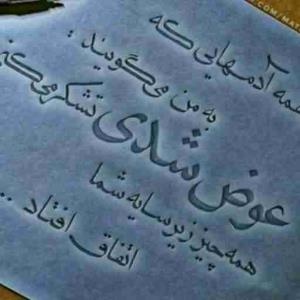 همه آدمهایی که
به من میگویند :
عوض شدی تشکر میکنم
همه چیز زیر سایه شما
اتفاق افتاد ..
.COM/MA